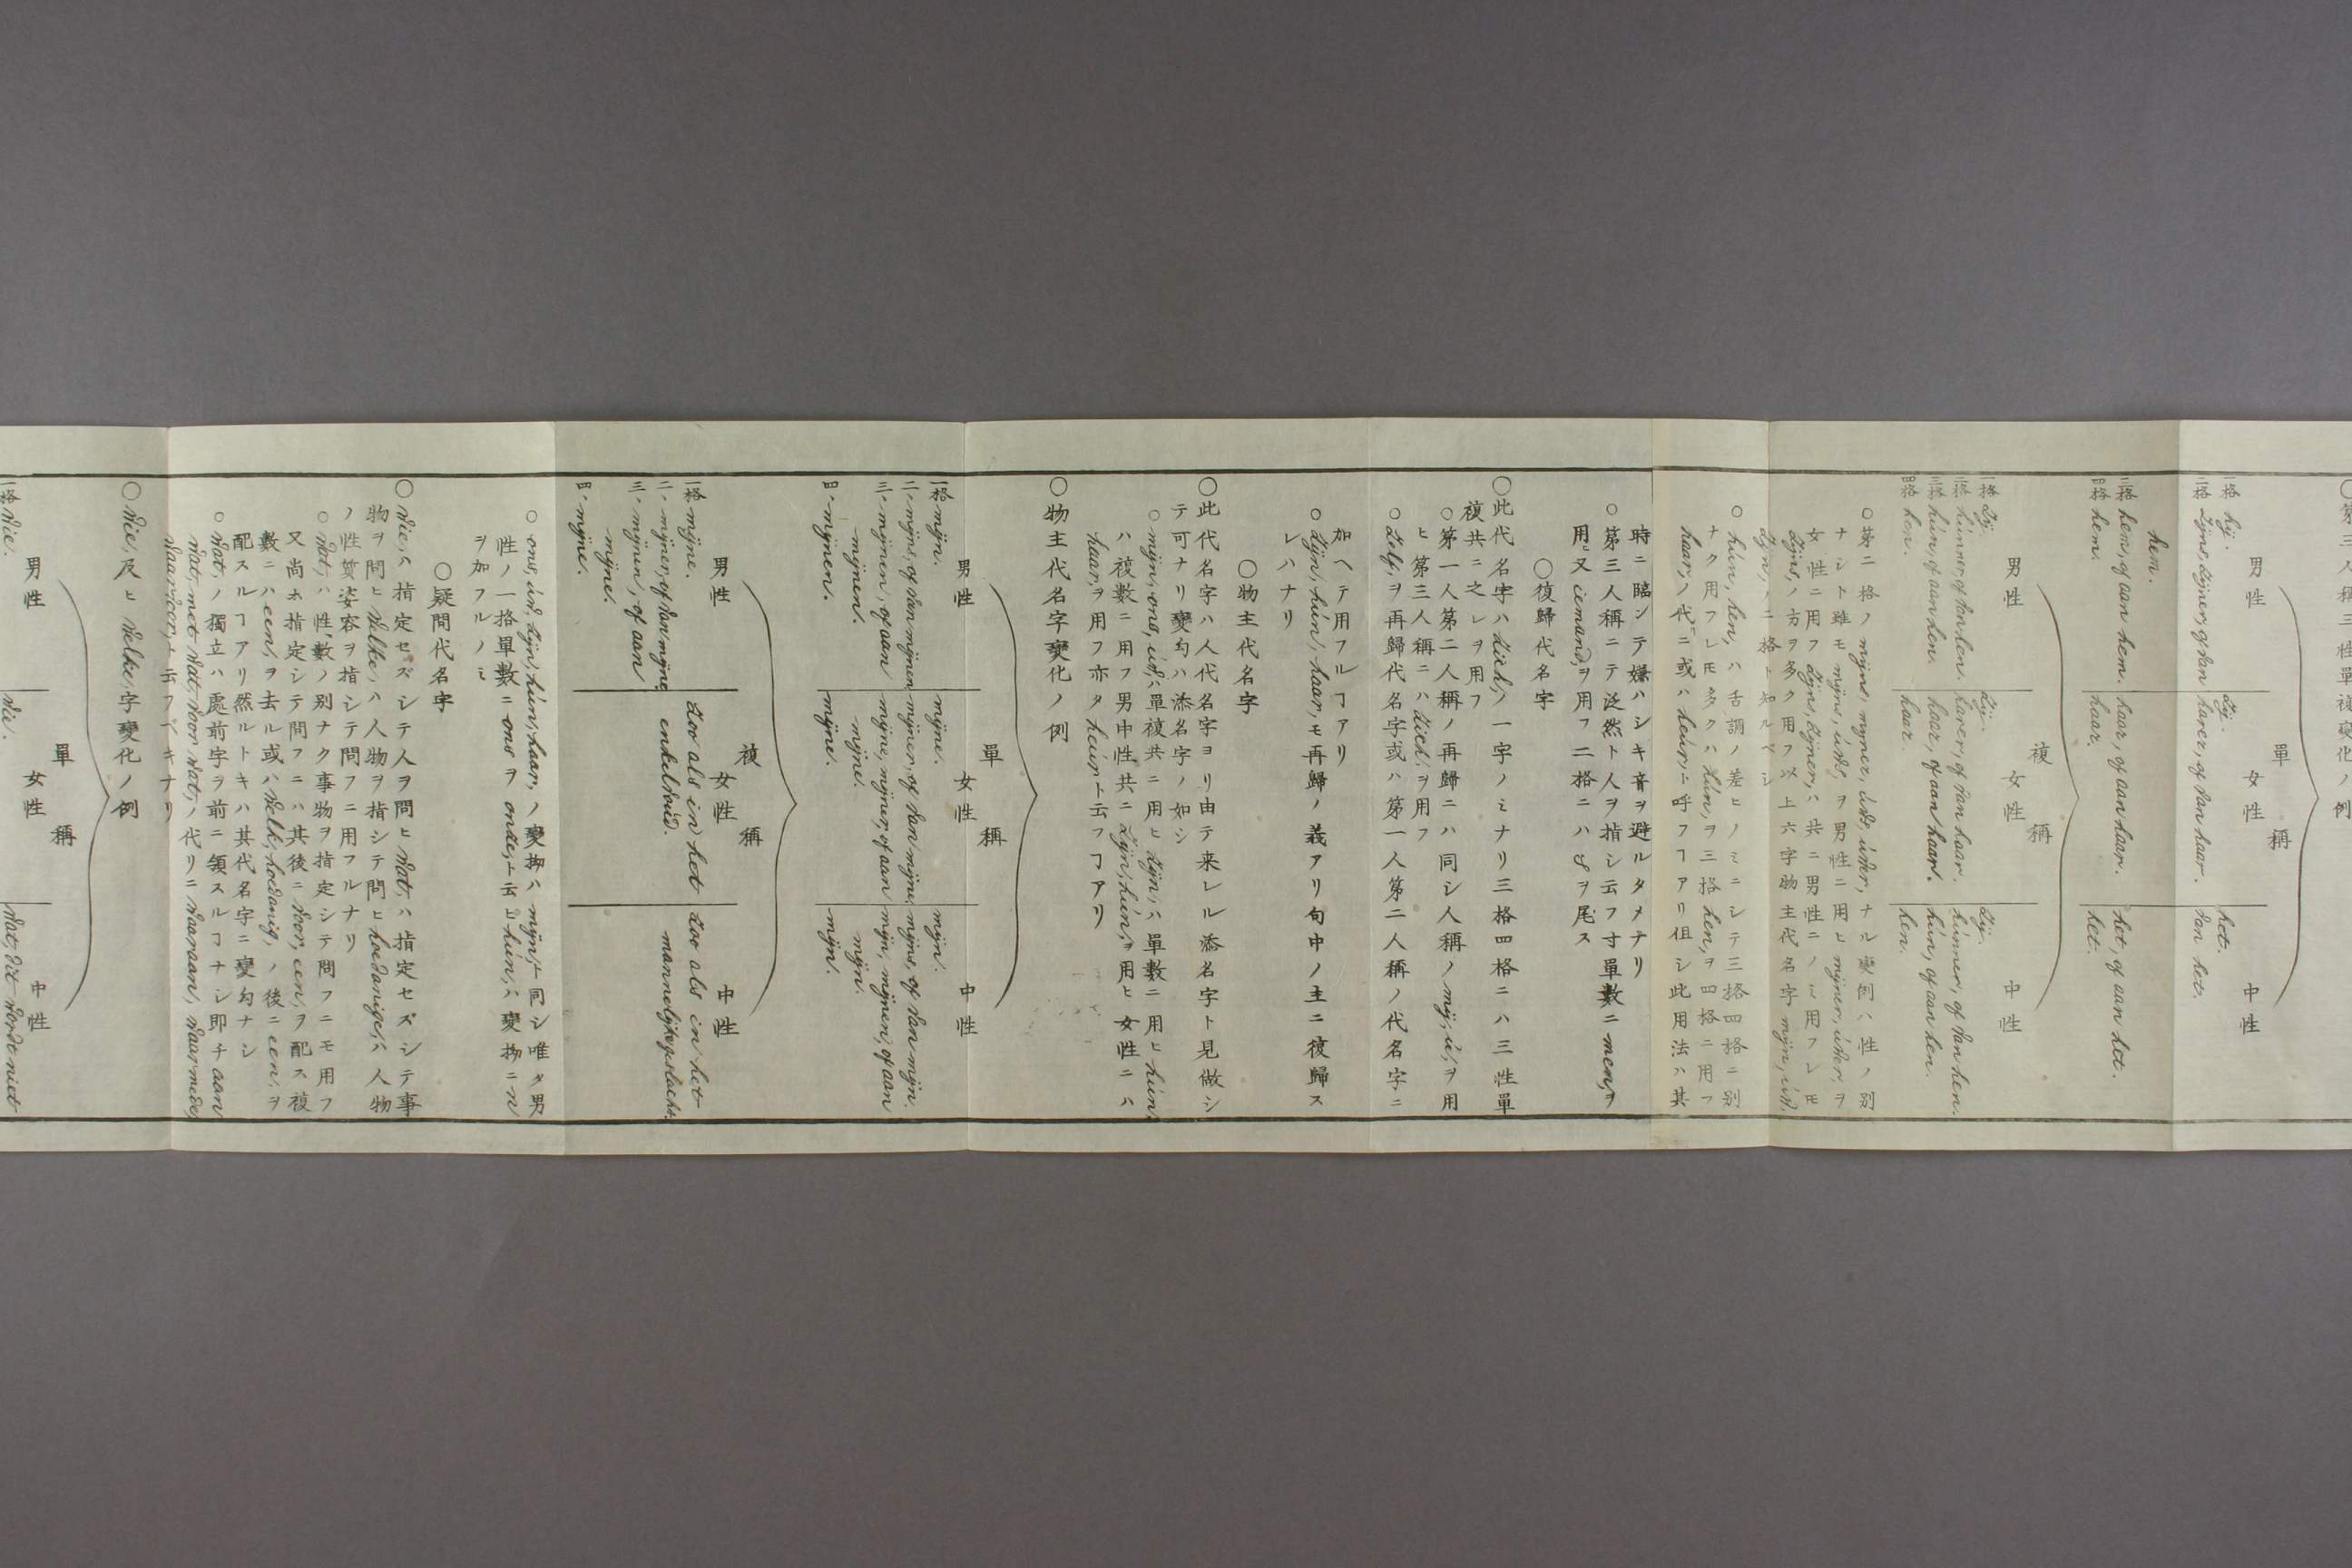 ○第三人稱三性單複變化ノ例
單稱
男性 女性 中性
一格 hij. zij. het.
二格 zijns, zijner, of van harer, of van haar. van het.
hem.
三格 hem, of aan hem. haar, of aan haar. het, of aan het.
四格 hem. haar. het.
複稱
男性 女性 中性
一格 zij. zij. zij.
二格 hunner, of van hen. harer, of van haar. hunner, of van hen.
三格 hún, of aan hen. haar, of aan haar. hún, of aan hen.
四格 hen. haar. hen.
○第二格ノ mijns, mijner, úws, úwer, ナル變例ハ性ノ別
ナシト雖モ mijns, úws, ヲ男性ニ用ヒ mijner, úwer, ヲ
女性ニ用フ zijns, zijner, ハ共ニ男性ニノミ用フレモ
zijns, ノ方ヲ多ク用フ以上六字物主代名字 mijn, úw,
zijn, ノ二格ト知ルベシ
○hún, hen, ハ舌調ノ差ヒノミニシテ三格四格ニ別
ナク用フレモ多クハ hún, ヲ三格 hen, ヲ四格ニ用フ
haar, ノ代ニ或ハ ニ呼フヿアリ但シ此用法ハ其
時ニ臨ンテ嫌ハシキ音ヲ避ルタメナリ
○第三人稱ニテ泛然ト人ヲ指シ云フ寸單數ニ men, ヲ
用ヒ又 iemand, ヲ用フ二格ニハ ヲ尾ス
○復歸代名字
○此代名字ハ zich, ノ一字ノミナリ三格四格ニハ三性單
複共ニ之レヲ用フ
○第一人第二人稱ノ再歸ニハ同シ人稱ノ mij, ú, ヲ用
ヒ第三人稱ニハ zich, ヲ用フ
○zelf, ヲ再歸代名字或ハ第一人第二人稱ノ代名字ニ
加ヘテ用フルヿアリ
○zijn, hún, haar, モ再歸ノ義アリ句中ノ主ニ復歸ス
レハナリ
○物主代名字
○此代名字ハ人代名字ヨリ由テ来レル添名字ト見做シ
テ可ナリ變勾ハ添名字ノ如シ
○mijn, ons, úw, ハ單複共ニ用ヒ zijn, ハ單數ニ用ヒ hún,
ハ複數ニ用フ男中性共ニ zijn, hún, ヲ用ヒ女性ニハ
haar, ヲ用フ亦タ ト云フヿアリ
○物主代名字變化ノ例
單稱
男性 女性 中性
一格 mijn. mijne. mijn.
二、mijns, of van mijnen mijner, of van mijne. mijns, of van mijn.
三、mijnen, of aan mijne, mijner, of aan mijn, mijnen, of aan
mijnen. mijne. mijn.
四、mijnen. mijne. mijn.
複稱
男性 女性 中性
一格 mijne. zoo als in het zoo als in het
二、mijner, of van mijne enkelvoúd. mannelijke geslacht.
三、mijnen, of aan
mijne.
四、mijne.
○ons, úw, zijn, hún, haar, ノ變物ハ mijn, ト同シ唯タ男
性ノ一格單數ニ ons ヲ onze, ト云ヒ hún, ハ變物ニ n
ヲ加フルノミ
○疑問代名字
○wie, ハ指定セズシテ人ヲ問ヒ wat, ハ指定セズシテ事
物ヲ問ヒ welke, ハ人物ヲ指シテ問ヒ hoedanige, ハ人物
ノ性質姿容ヲ指シテ問フニ用フルナリ
○wat, ハ性、數ノ別ナク事物ヲ指定シテ問フニモ用フ
又尚ホ指定シテ問フニハ其後ニ voor, een, ヲ配ス複
數ニハ een, ヲ去ル或ハ welk, hoedanig, ノ後ニ een, ヲ
配スルヿアリ然ルトキハ其代名字ニ變勾ナシ
○wat, ノ獨立ハ處前字ヲ前ニ領スルヿナシ即チ aan
wat, met wat, voor wat, ノ代リニ waaraan, waarmede,
waarvoor, ト云フベキナリ
○wie, 及ヒ welke, 字變化ノ例
單稱
男性 女性 中性
一格 wie. wie. wat, dit wordt niet